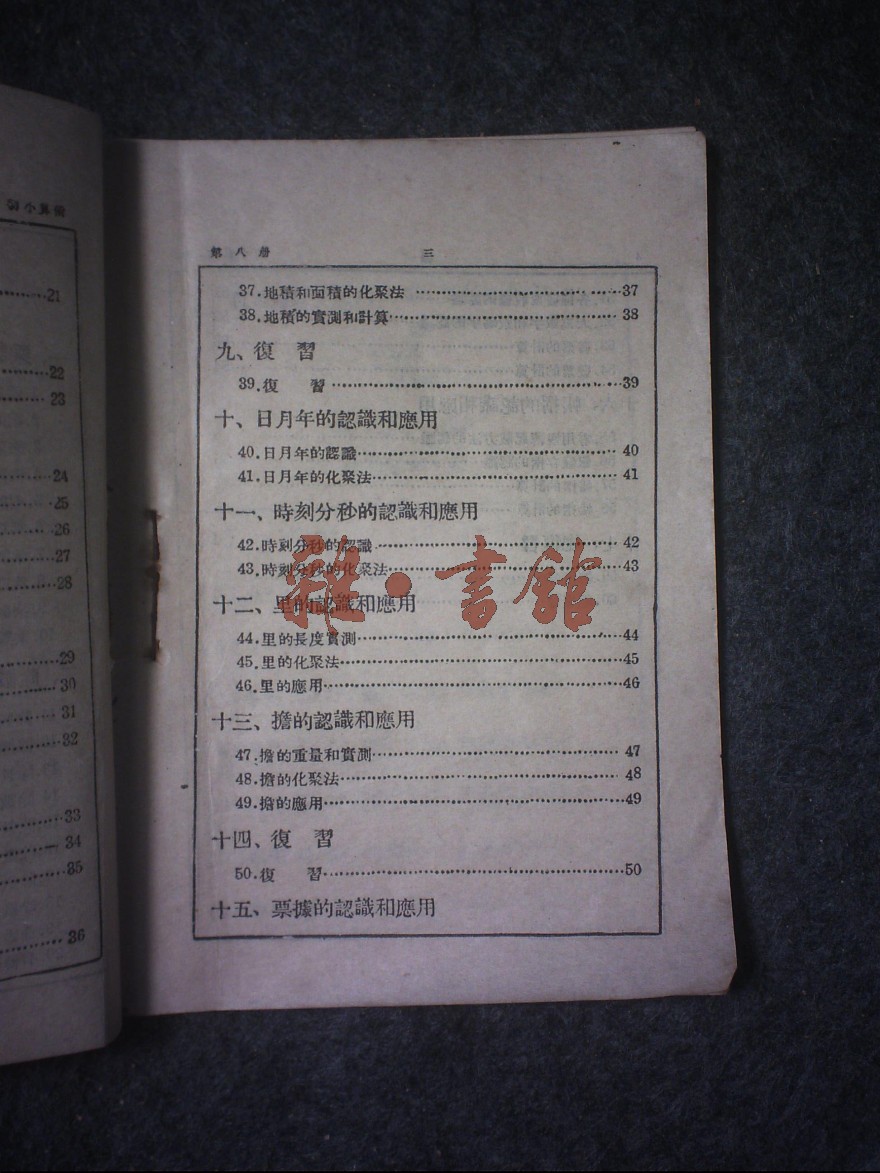 初小算術
21
22
23
24
25
26
27
28
29
30
31
32
33
34
35
36
第八冊 三
37.地積和面積的化聚法……37
38.地積的實測和計算……38
九、復習
39.復習……39
十、日月年的認識和應用
40.日月年的認識……40
41.日月年的化聚法……41
十一、時刻分秒的認識和應用
42.時刻分秒的認識……42
43.時刻分秒的化聚法……43
十二、里的認識和應用
44.里的長度實測……44
45.里的化聚法……45
46.里的應用……46
十三、擔的認識和應用
47.擔的重量和實測……47
48.擔的化聚法……48
49.擔的應用……49
十四、復習
50.復習……50
十五、票據的認識和應用
雜·書館